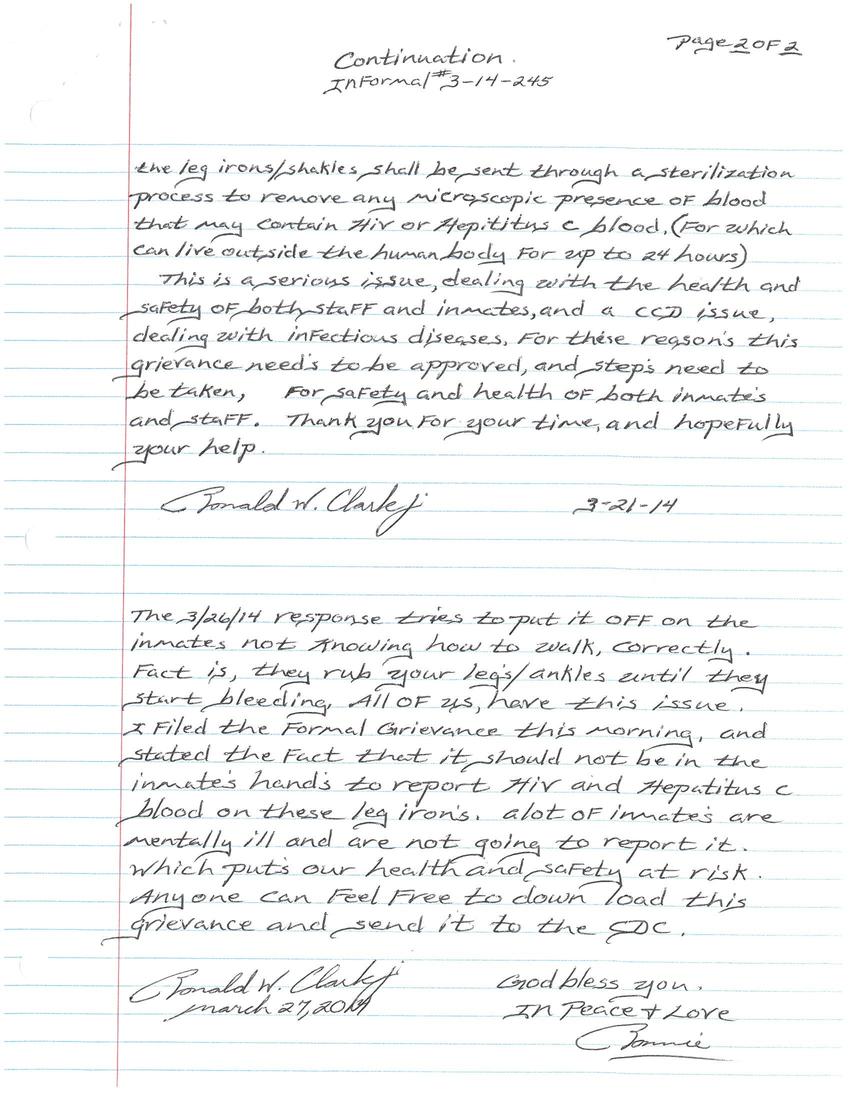 Page 2 OF 2
Continuation.
InFormal #3-14-245
the leg irons/shakles shall be sent through a sterilization
process to remove any microscopic presence of blood
that may contain Hiv or Hepititus c blood. (For which
can live outside the human body For up to 24 hours)
This is a serious issue, dealing with the health and
saFety OF both staFF and inmates, and a CCD issue,
dealing with inFectious diseases. For these reason's this
grievance need's to be approved, and step's need to
be taken, For saFety and health OF both inmate's
and staFF. Thank you For your time, and hopeFully
your help.
Ronald W. Clark Jr 3-21-14
The 3/26/14 response tries to put it OFF on the
inmates not Knowing how to walk, correctly.
Fact is, they rub your leg's/ankles until they
start bleeding. All OF us, have this issue.
I Filed the Formal Grievance this morning, and
stated the Fact that it should not be in the
inmate's hand's to report Hiv and Hepatitus c
blood on these leg iron's. alot OF inmate's are
mentally ill and are not going to report it.
Which put's our health and saFety at risk.
Anyone can Feel Free to down load this
grievance and send it to the CDC.
Ronald W. Clark Jr God bless you.
March 27, 2014 In Peace + Love
Ronnie